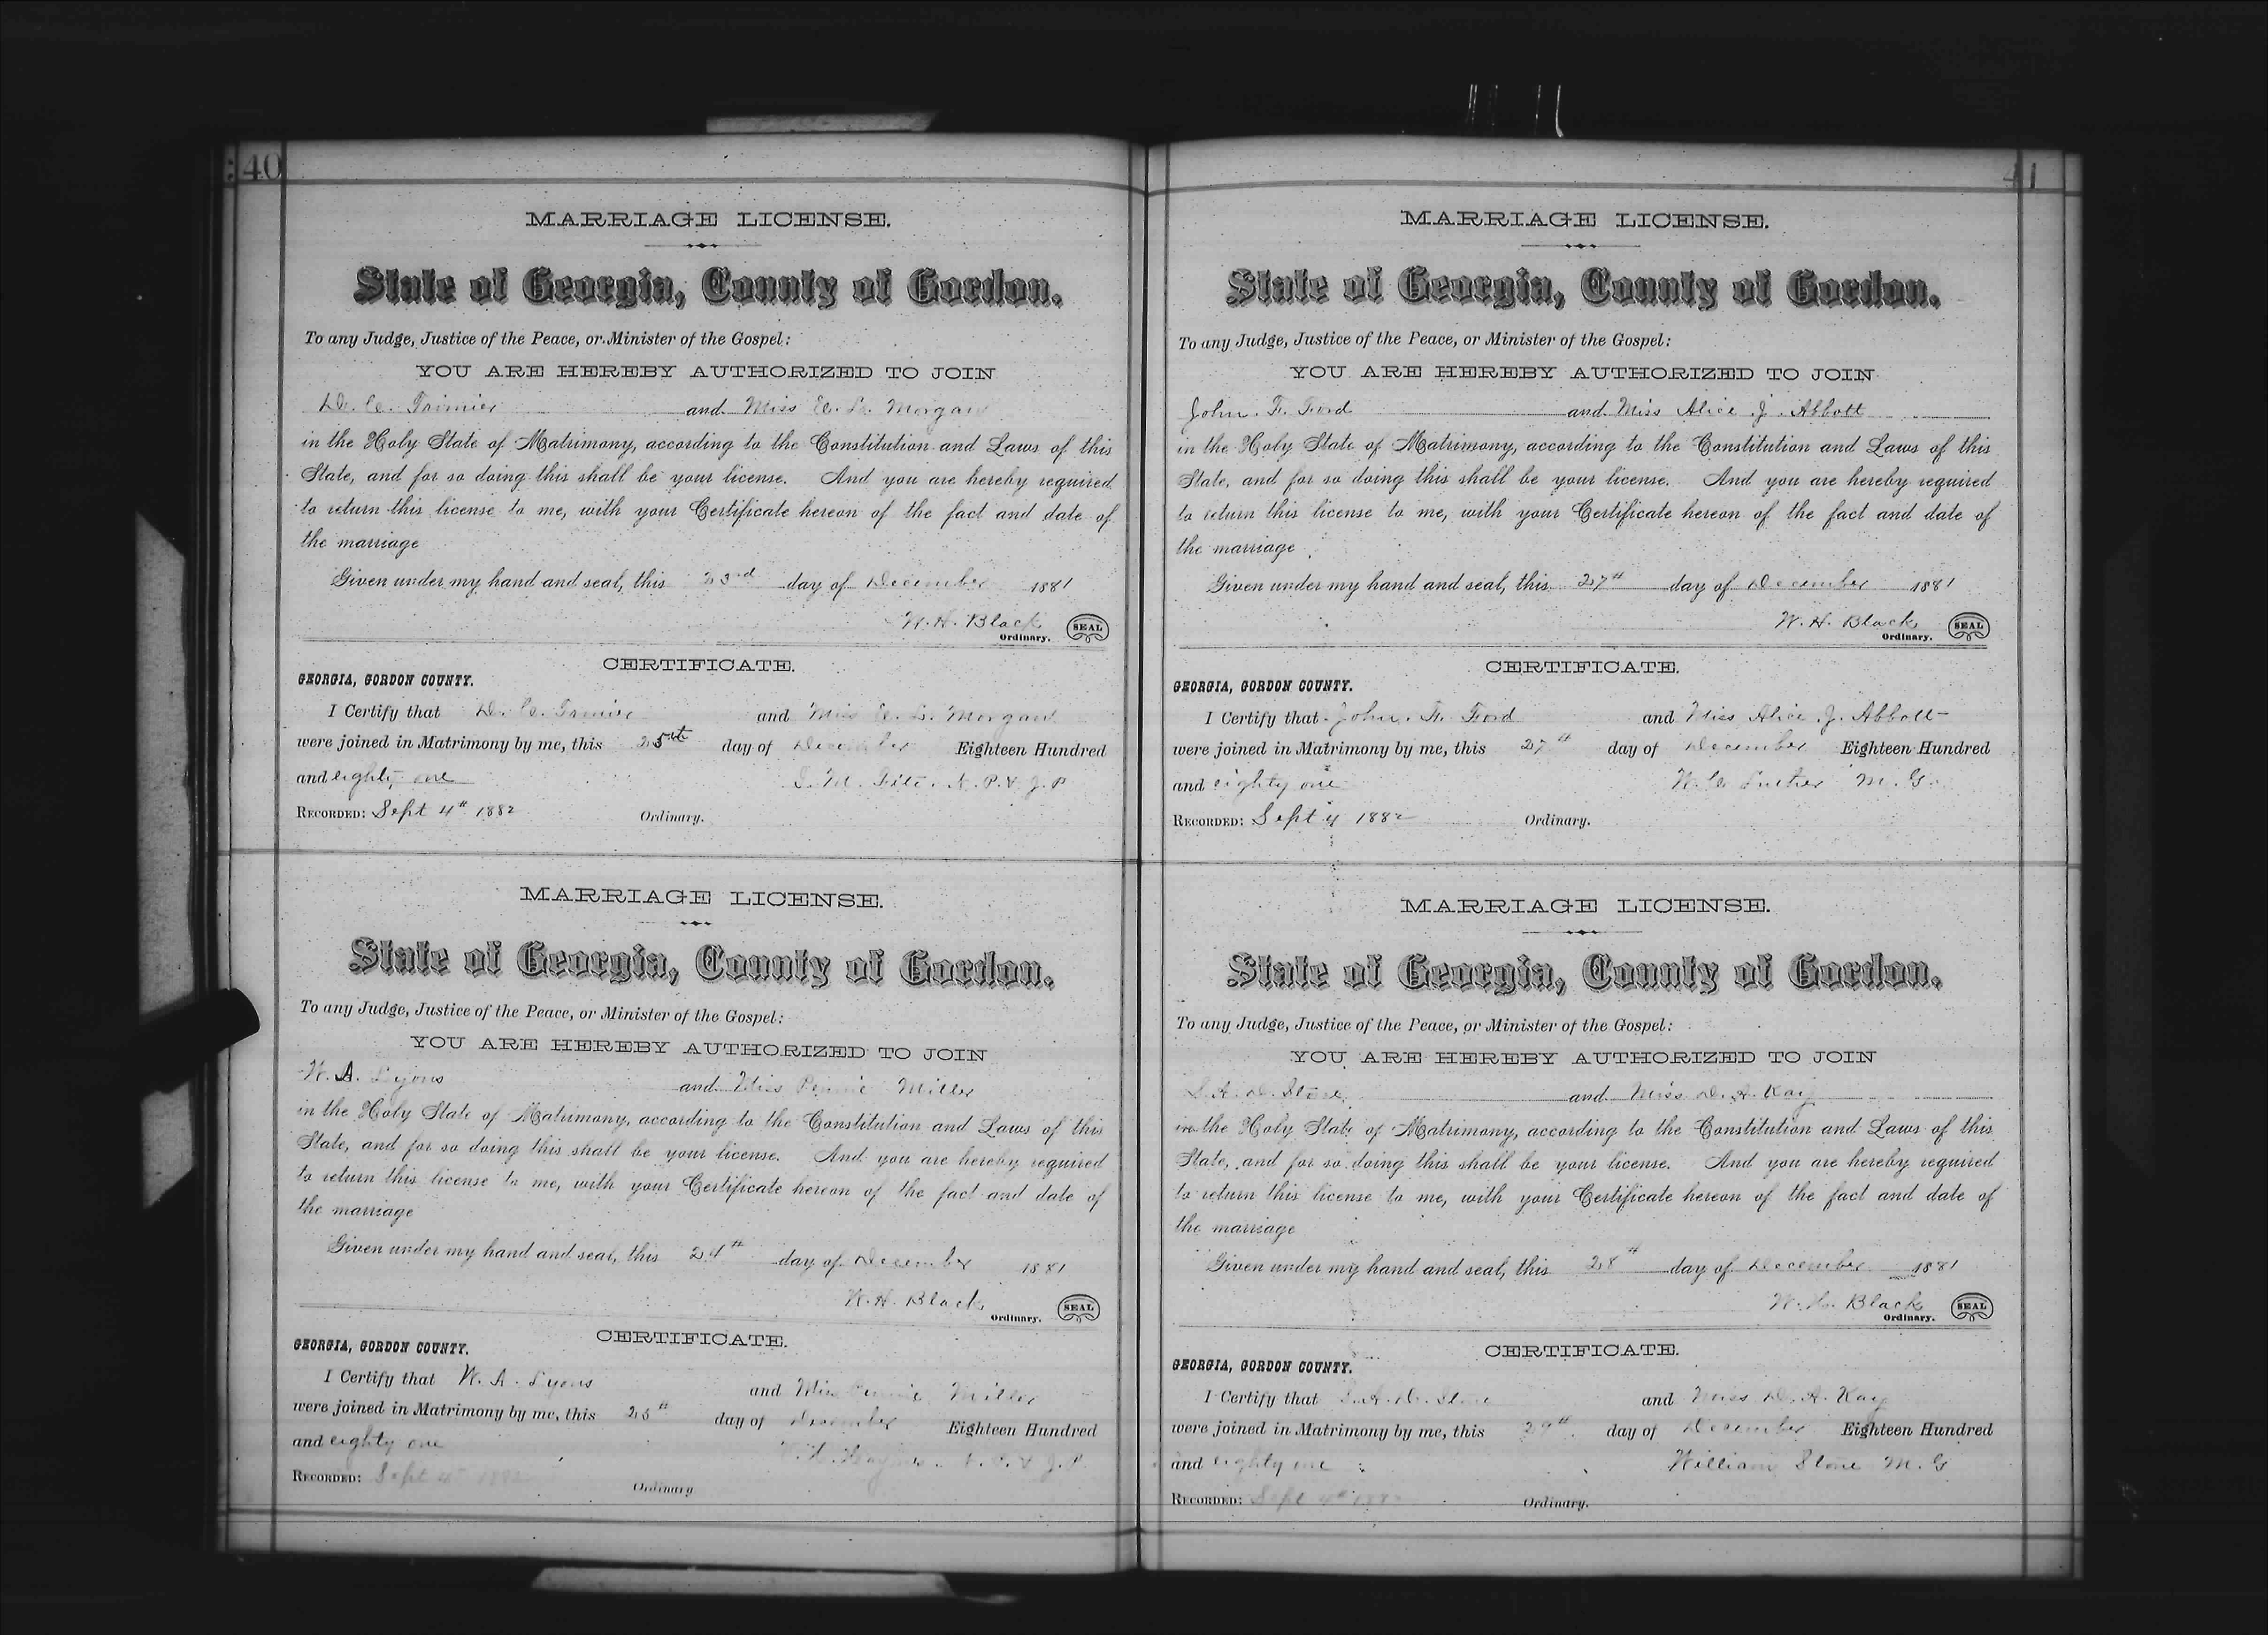 40
MARRIAGE LICENSE.
State of Georgia, County of Gordon.
To any Judge, Justice of the Peace, or Minister of the Gospel:
YOU ARE HEREBY AUTHORIZED TO JOIN
and Miss Morgan
in the Holy State of Matrimony, according to the Constitution and Laws of this
State, and for so doing this shall be your license. And you are hereby required
to return this license to me, with your Certificate hereon of the fact and date of
the marriage
Given under my hand and seal, this 23rd day of December 1881
W. H. Black
Ordinary. SEAL
CERTIFICATE.
GEORGIA, GORDON COUNTY.
I Certify that and Miss Morgan
were joined in Matrimony by me, this 25th day of December Eighteen Hundred
and eighty one
N. P. & J. P
RECORDED: Sept 4th 1882 Ordinary.
MARRIAGE LICENSE.
State of Georgia, County of Gordon.
To any Judge, Justice of the Peace, or Minister of the Gospel:
YOU ARE HEREBY AUTHORIZED TO JOIN
W. A. Lyons and Miss Miller
in the Holy State of Matrimony, according to the Constitution and Laws of this
State, and for so doing this shall be your license. And you are hereby required
to return this license to me, with your Certificate hereon of the fact and date of
the marriage
Given under my hand and seal, this 24th day of December 1881
W. H. Black
Ordinary. SEAL
CERTIFICATE.
GEORGIA, GORDON COUNTY.
I Certify that W. A. Lyons and Miss Miller
were joined in Matrimony by me, this 25th day of December Eighteen Hundred
and eighty one
N. P. & J. P.
RECORDED: Sept 4th 1882 Ordinary.
41
MARRIAGE LICENSE.
State of Georgia, County of Gordon.
To any Judge, Justice of the Peace, or Minister of the Gospel:
YOU ARE HEREBY AUTHORIZED TO JOIN
John. F. Ford and Miss Alice J. Abbott
in the Holy State of Matrimony, according to the Constitution and Laws of this
State, and for so doing this shall be your license. And you are hereby required
to return this license to me, with your Certificate hereon of the fact and date of
the marriage
Given under my hand and seal, this 27th day of December 1881
W. H. Black
Ordinary. SEAL
CERTIFICATE.
GEORGIA, GORDON COUNTY.
I Certify that John. F. Ford and Miss Alice J. Abbott
were joined in Matrimony by me, this 27th day of December Eighteen Hundred
and eighty one
M. G.
RECORDED: Sept 4 1882 Ordinary.
MARRIAGE LICENSE.
State of Georgia, County of Gordon.
To any Judge, Justice of the Peace, or Minister of the Gospel:
YOU ARE HEREBY AUTHORIZED TO JOIN
Stone and Miss D. A. Kay
in the Holy State of Matrimony, according to the Constitution and Laws of this
State, and for so doing this shall be your license. And you are hereby required
to return this license to me, with your Certificate hereon of the fact and date of
the marriage
Given under my hand and seal, this 28th day of December 1881
W. H. Black
Ordinary. SEAL
CERTIFICATE.
GEORGIA, GORDON COUNTY.
I Certify that Stone and Miss D. A. Kay
were joined in Matrimony by me, this 29th day of December Eighteen Hundred
and eighty one
William Stone M. G
RECORDED: Sept 4th 1882 Ordinary.